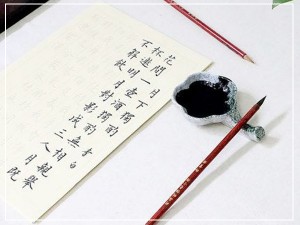 月下獨酌 李白
花間一壺酒獨酌無相親舉
杯邀明月對影成三人月既
不解飲